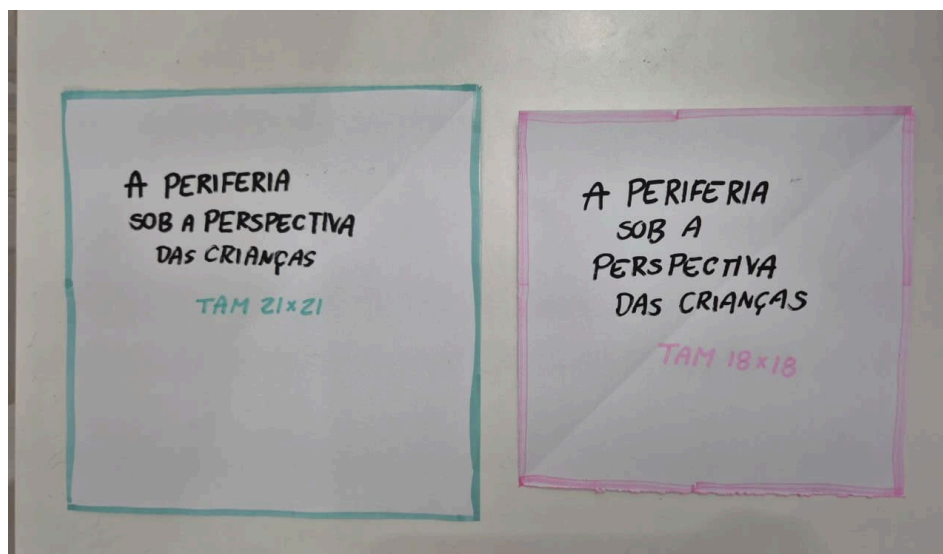 A PERIFERIA
SOB A PERSPECTIVA
DAS CRIANÇAS
TAM 21x21
A PERIFERIA
SOB A
PERSPECTIVA
DAS CRIANÇAS
TAM 18x18